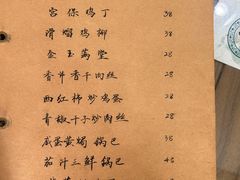 宫保鸡丁 38
滑嘈鸡柳 38
金玉满堂 28
香芹香干肉丝 28
西红柿炒鸡蛋 28
青椒干子炒肉丝 28
咸蛋黄焗锅巴 38
茄汁三鲜锅巴 48